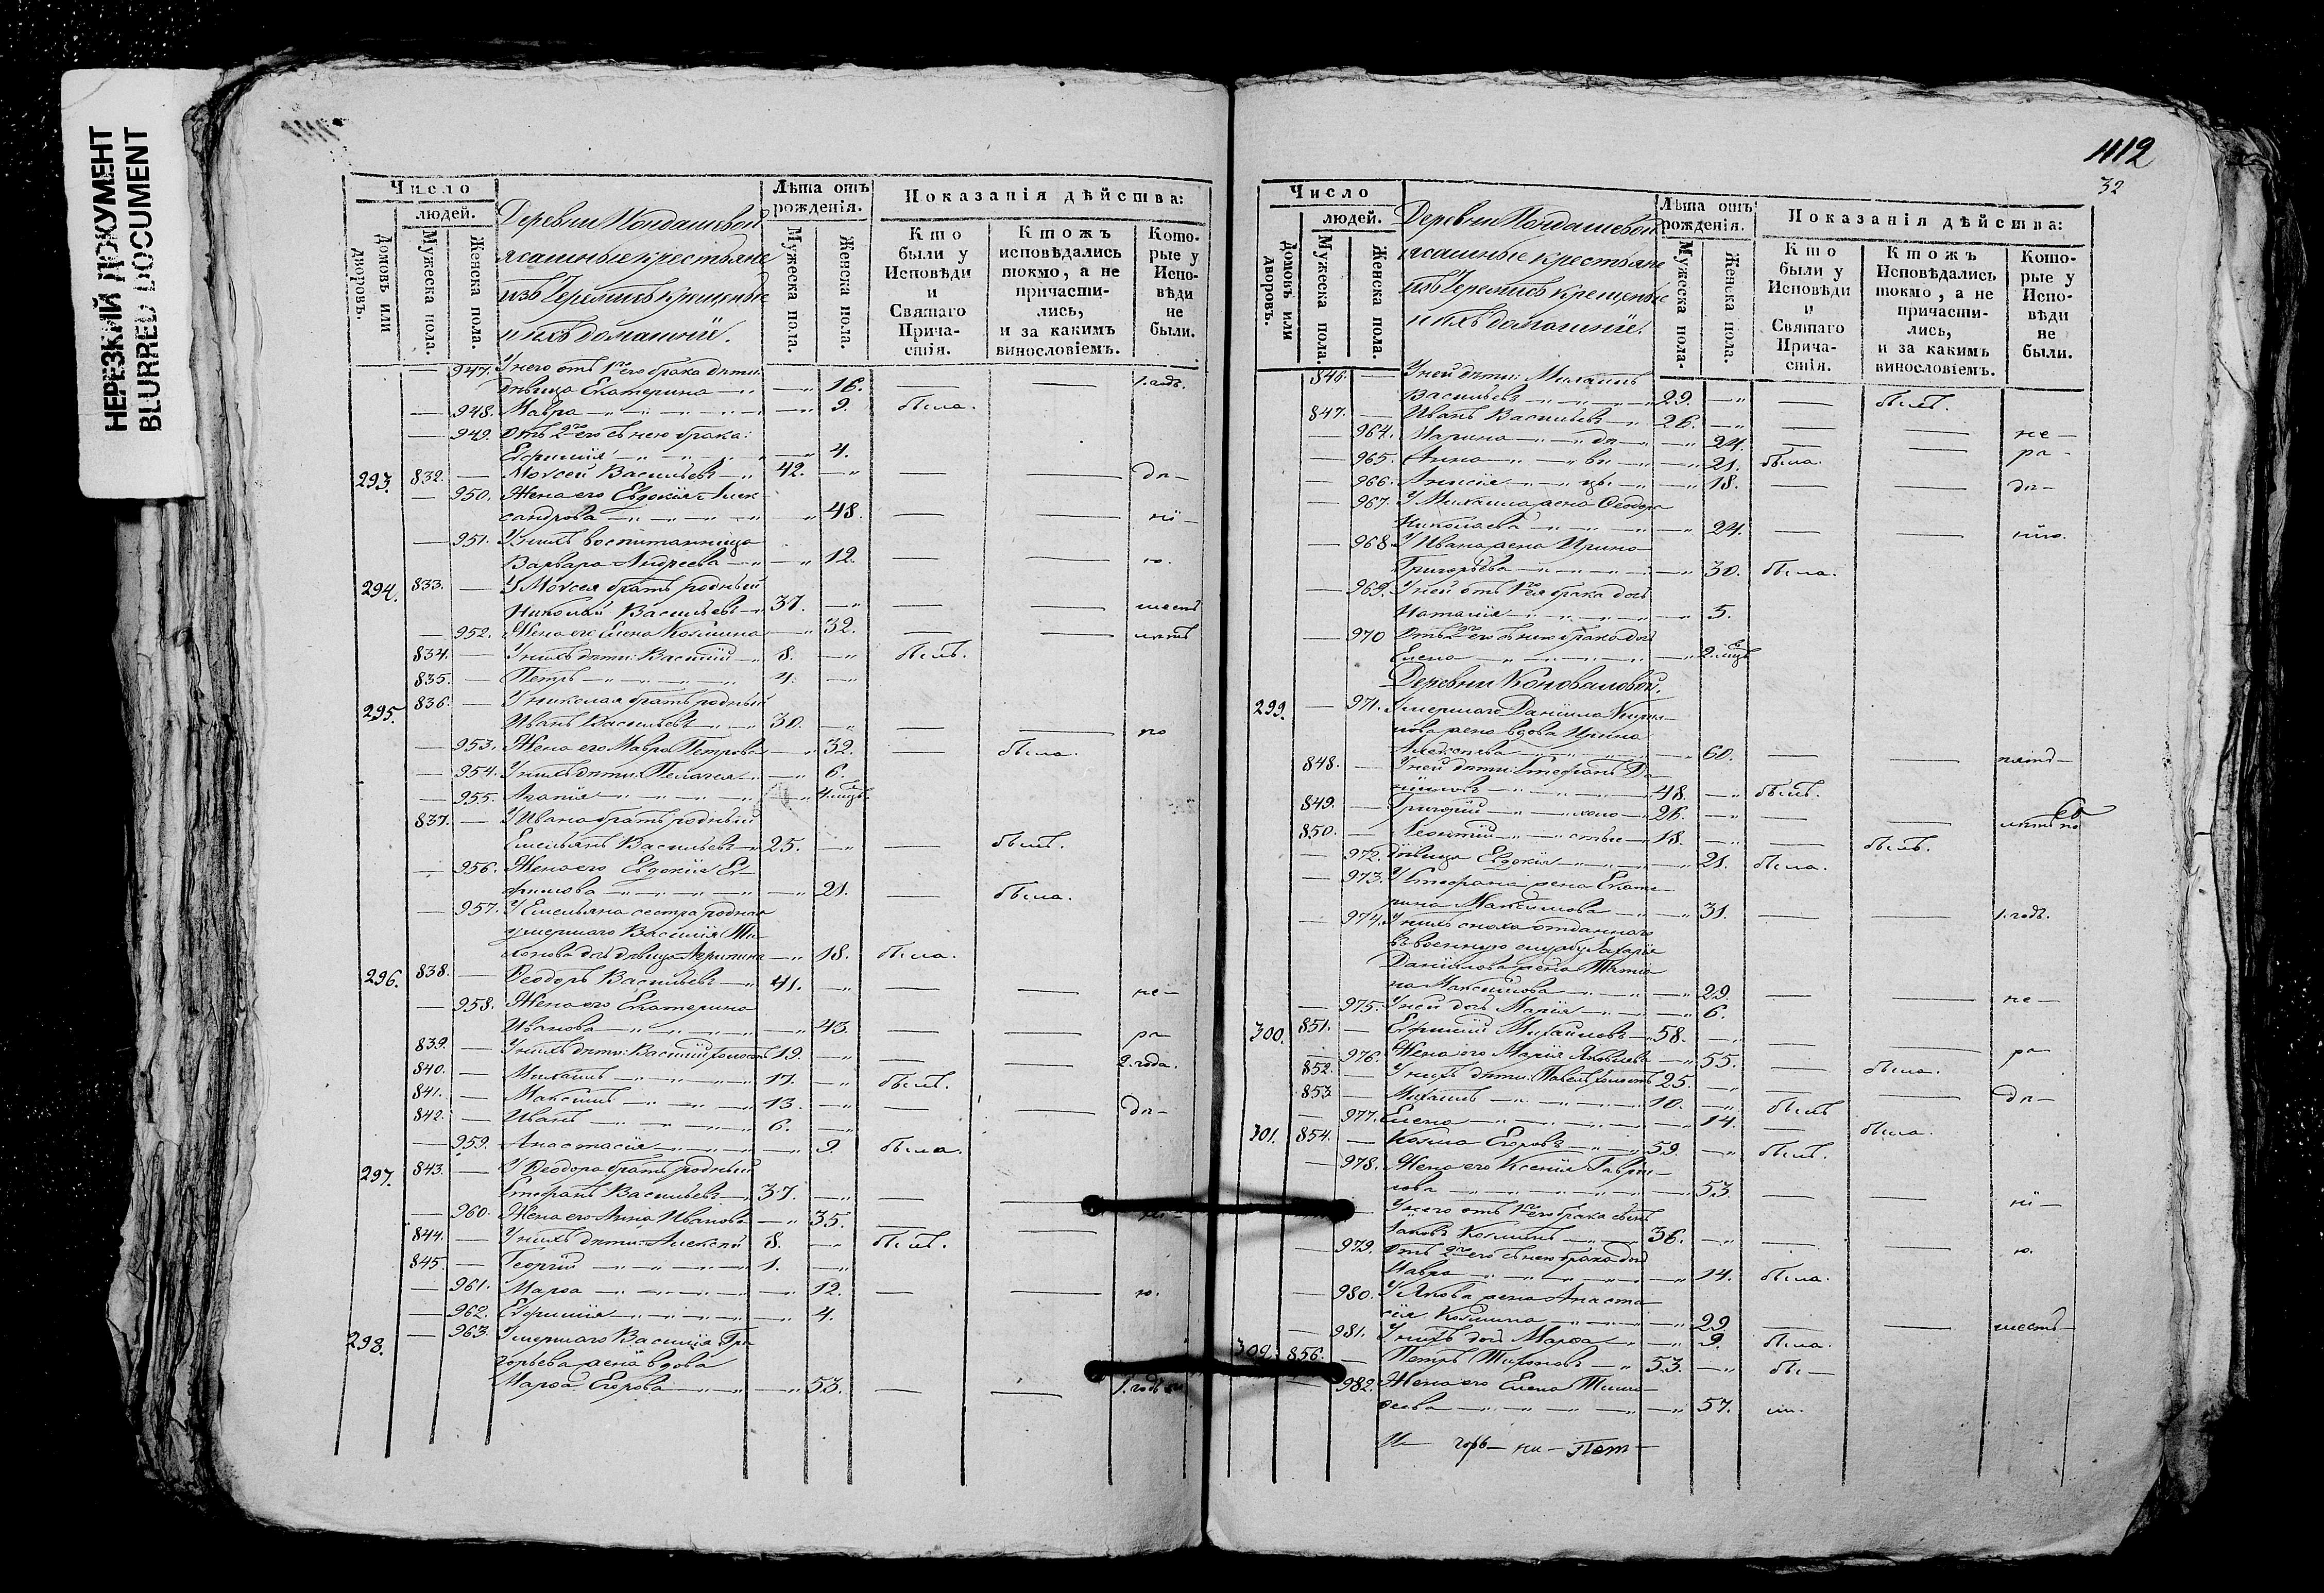 НЕРЕЗКИЙ ДОКУМЕНТ
BLURRED DOCUMENT
Число
людей.
Домовъ или дворовъ.
Мужеска пола.
Женска пола.
Деревни
ясашные крестьяне
изъ Черемисъ крещеные
и ихъ домашнiй.
Лѣта отъ рожденiя.
Мужеска пола.
Женска пола.
Показанiя дѣйства:
Кто были у Исповѣди и Святаго Причастiя.
Ктожъ исповѣдались токмо, а не причастились, и за какимъ винословiемъ.
Которые у Исповѣди не были.
947. У него отъ 1го его брака дѣти:
дѣвица Екатерина 16. 1. годъ.
948. Мавра 9. была.
949. отъ 2го его съ нею брака:
Евфимiя 4.
293. 832. Моѵсей Васильевъ 42. дп-
950. Жена его Евдокiя Алек
сандрова 48. нi-
951. У нихъ воспитанница
Варвара Андреева 12. ю.
294. 833. У Моѵсея братъ родный
Николай Васильевъ 37. шесть
952. Жена его Елена Козмина 32. лѣтъ
834. У нихъ дѣти: Василiй 8. былъ.
835. Петръ 4.
295. 836. У Николая братъ родный
Иванъ Васильевъ 30. по
953. Жена его Мавра Петрова 32. была.
954. У нихъ дѣти: Пелагея 6.
955. Агапiя 4. мцъ
837. У Ивана братъ родный
Емельянъ Васильевъ 25. былъ.
956. Жена его Евдокiя Ев-
фимова 21. была.
957. У Емельяна сестра родная
умершаго Василiя Ти-
хонова дочь дѣвица 18. была.
296. 838. Ѳеодоръ Васильевъ 41. не-
958. Жена его Екатерина
Иванова 43. ра-
839. У нихъ дѣти: Василiй холостъ 19. 2. года.
840. Михаилъ 17. былъ.
841. Максимъ 13. дп-
842. Иванъ 6.
959. Анастасiя 9. была.
297. 843. У Ѳеодора братъ родный
Стефанъ Васильевъ 37.
960. Жена его Анна Иванова 35.
844. У нихъ дѣти: Алексѣй 8. былъ.
845. Георгiй 1.
961. Марѳа 12. ю.
962. Евфимiя 4.
298. 963. Умершаго Василiя Гри
горьева жена вдова
Марѳа Егорова 53. 1. годъ
412
32
Число
людей.
Домовъ или дворовъ.
Мужеска пола.
Женска пола.
Деревни
ясашные крестьяне
изъ Черемисъ крещеные
и ихъ домашнiй.
Лѣта отъ рожденiя.
Мужеска пола.
Женска пола.
Показанiя дѣйства:
Кто были у Исповѣди и Святаго Причастiя.
Ктожъ Исповѣдались токмо, а не причастились, и за какимъ винословiемъ.
Которые у Исповѣди не были.
846. У ней дѣти: Михаилъ
Васильевъ 29. былъ.
847. Иванъ Васильевъ 26. не-
964. Марина дѣ 24. ра-
965. Анна ви 21. была.
966. Анисiя цы 18. дп-
967. У Михаила жена Ѳеодора
Николаева 24. нiю.
968. У Ивана жена Ирина
Григорьева 30. была.
969. У ней отъ 1го ея брака дочь
Наталiя 5.
970. Отъ 2го его съ нею брака дочь
Елена 2. мцъ
Деревни Коноваловой.
299. 971. Умершаго Данiила Кири-
лова жена вдова Ирина
Алексѣева 60. пять-
848. У ней дѣти: Стефанъ Да-
нииловъ 48. былъ.
849. Григорiй холо 26. лѣтъ
850. Леонтiй стые 18. былъ.
972. Дѣвица Евдокiя 21. была.
973. У Стефана жена Екате-
рина Максимова 31. 1. годъ.
974. У нихъ сноха отданнаго
въ военную службу Захарiя
Данiилова жена Татiа
на Максимова 29. не-
975. У ней дочь Марiя 6.
300. 851. Евфимiй Михайловъ 58. ра-
976. Жена его Марiя Яковлева 55. была.
852. У нихъ дѣти: Павелъ холостъ 25. дп-
853. Михаилъ 10. былъ
977. Елена 14. была.
301. 854. Козма Егоровъ 59. былъ.
978. Жена его Ксенiя Гаври-
лова 53. нi-
У него отъ 1го его брака сынъ
Iаковъ Козминъ 36. ю.
979. Отъ 2го его съ нею брака дочь
Мавра 14. была.
980. У Якова жена Анаста
сiя Козмина 29. шесть-
981. У нихъ дочь Марѳа 9. была.
302. 856. Петръ Тихоновъ 53. бы-
982. Жена его Елена Тимо-
ѳеева 57. ли.